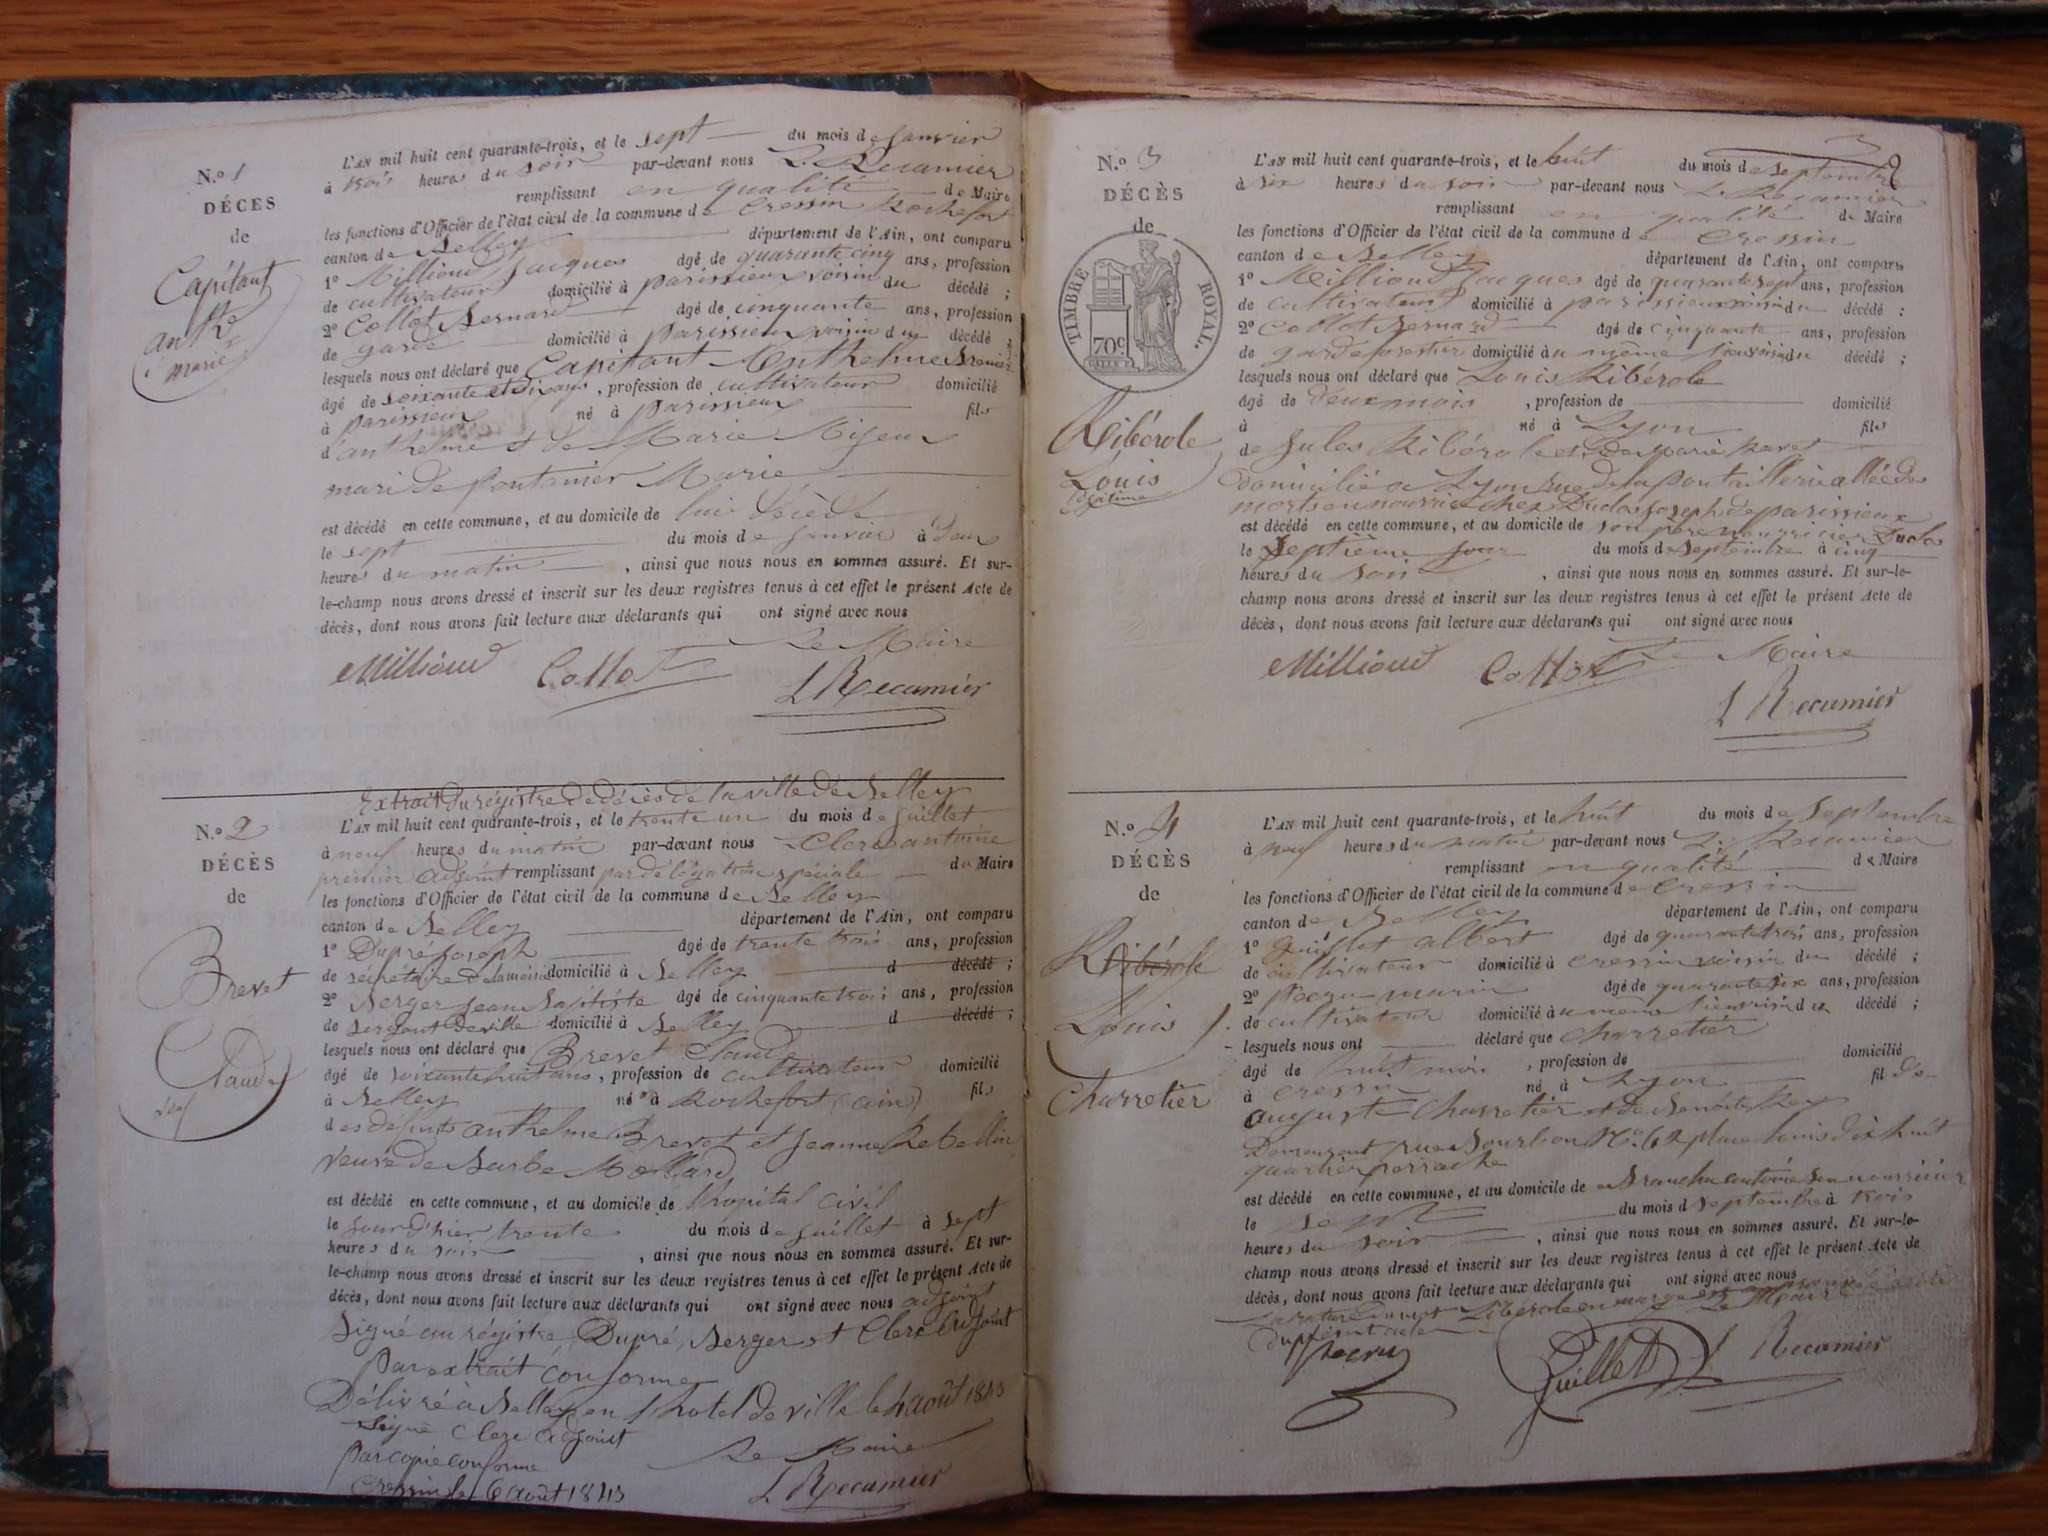 N.o 1
DÉCES
de
Capitant
anthe
marie
L'AN mil huit cent quarante-trois, et le sept du mois de Janvier
à trois heures du soir par-devant nous L. Recamier
remplissant en qualité de Maire
les fonctions d'Officier de l'état civil de la commune de Cressin Rochefort
canton de Belley département de l'Ain, ont comparu
1o Millioud Jacques âgé de quarante cinq ans, profession
de cultivateur domicilié à parissieux voisin du décédé ;
2o Collot Bernard âgé de cinquante ans, profession
de garde domicilié à parissieux voisin du décédé ;
lesquels nous ont déclaré que Capitant Anthelme
âgé de soixante et dix ans, profession de cultivateur domicilié
à parissieux né à parissieux fils
d'anthelme et de Marie
mari de fontanier Marie
est décédé en cette commune, et au domicile de lui décédé
le sept du mois de Janvier à deux
heures du matin, ainsi que nous nous en sommes assuré. Et sur-
le-champ nous avons dressé et inscrit sur les deux registres tenus à cet effet le présent Acte de
décès, dont nous avons fait lecture aux déclarants qui ont signé avec nous
Le Maire
Millioud Collot L Recamier
Extrait du régistre de décès de la ville de Belley
N.o 2
DÉCÈS
de
Brevet
Claude
L'AN mil huit cent quarante-trois, et le trente un du mois de Juillet
à neuf heures du matin par-devant nous Clerc antoine
premier adjoint remplissant par délégation spéciale du Maire
les fonctions d'Officier de l'état civil de la commune de Belley
canton de Belley département de l'Ain, ont comparu
1o Dupré Joseph âgé de trente trois ans, profession
de sécrétaire de la mairie domicilié à Belley d décédé ;
2o Berger Jean Baptiste âgé de cinquante trois ans, profession
de sergent de ville domicilié à Belley d décédé ;
lesquels nous ont déclaré que Brevet Claude
âgé de soixante huit ans, profession de cultivateur domicilié
à Belley né à Rochefort (ain) fils
des défunts anthelme Brevet et Jeanne Rebellin
veuf de Barbe Mollard
est décédé en cette commune, et au domicile de l'hopital civil
le jour d'hier trente du mois de Juillet à sept
heures du soir, ainsi que nous nous en sommes assuré. Et sur-
le-champ nous avons dressé et inscrit sur les deux registres tenus à cet effet le présent Acte de
décès, dont nous avons fait lecture aux déclarants qui ont signé avec nous adjoint
Signé au régistre Dupré, Berger et Clerc adjoint
Par extrait conforme
Délivré à Belley en l'hotel de ville le 4 août 1843
Signé Clerc adjoint
Par copie conforme
Cressin le 6 août 1843
Le Maire
L Recamier
3
N.o 3
DÉCÈS
de
TIMBRE ROYAL.
70c
Ribérole
Louis
légitime
L'AN mil huit cent quarante-trois, et le huit du mois de septembre
à six heures du soir par-devant nous L. Recamier
remplissant en qualité de Maire
les fonctions d'Officier de l'état civil de la commune de Cressin
canton de Belley département de l'Ain, ont comparu
1o Millioud Jacques âgé de quarante sept ans, profession
de cultivateur domicilié à parissieux voisin du décédé ;
2o Collot Bernard âgé de cinquante ans, profession
de garde forestier domicilié au même lieu voisin du décédé ;
lesquels nous ont déclaré que Louis Ribérole
âgé de deux mois, profession de domicilié
à né à Lyon fils
de Jules Ribérole et de Marie
domicilié a Lyon rue de la poutaillerie allée des
morts en nourrice chez Dudos Joseph de parissieux
est décédé en cette commune, et au domicile de son père nourricier Dudos
le Septième jour du mois de Septembre à cinq
heures du soir, ainsi que nous nous en sommes assuré. Et sur-le-
champ nous avons dressé et inscrit sur les deux registres tenus à cet effet le présent Acte de
décès, dont nous avons fait lecture aux déclarants qui ont signé avec nous
Le Maire
Millioud Collot L Recamier
N.o 4
DÉCÈS
de
Ribérole
Louis
Charretier
L'AN mil huit cent quarante-trois, et le huit du mois de Septembre
à neuf heures du matin par-devant nous L. Recamier
remplissant en qualité de Maire
les fonctions d'Officier de l'état civil de la commune de Cressin
canton de Belley département de l'Ain, ont comparu
1o Juillet albert âgé de quarante trois ans, profession
de cultivateur domicilié à cressin voisin du décédé ;
2o marin âgé de quarante six ans, profession
de cultivateur domicilié au même lieu voisin du décédé ;
lesquels nous ont déclaré que Charretier
âgé de huit mois, profession de domicilié
à cressin né à Lyon fil de
auguste Charretier et de Benoite Rey
Demeurant rue Bourbon No. 62 place Louis dix huit
quartier perrache
est décédé en cette commune, et au domicile de antoine son nourricier
le sept du mois d septembre à trois
heures du soir, ainsi que nous nous en sommes assuré. Et sur-le-
champ nous avons dressé et inscrit sur les deux registres tenus à cet effet le présent Acte de
décès, dont nous avons fait lecture aux déclarants qui ont signé avec nous
La rature du mot Ribérole en marge est
du présent acte Le Maire
Juillet L Recamier